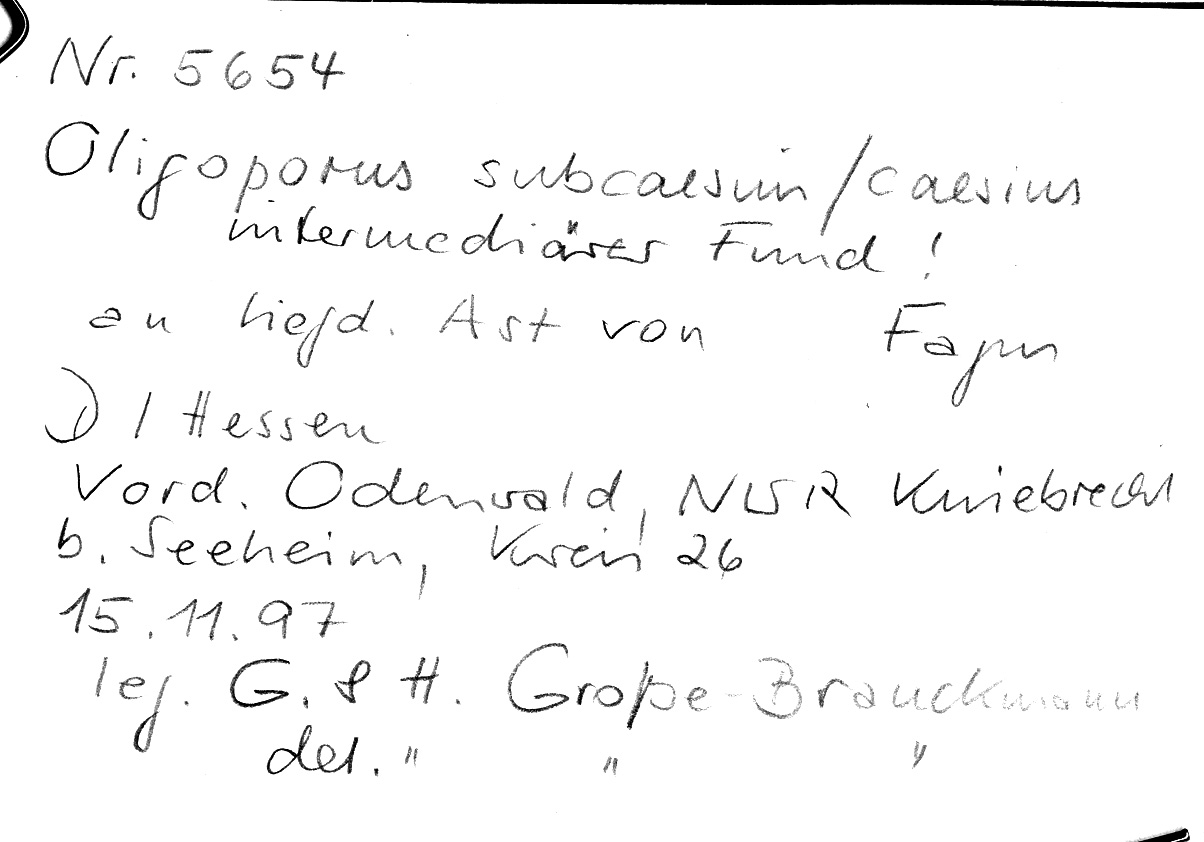 Nr. 5654
Oligoporus subcaesius/caesius
intermediärer Fund!
an liegd. Ast von Fagus
D / Hessen
Vord. Odenwald, NWR Kniebrecht
b. Seeheim, Kreis 26
15.11.97
leg. G. & H. Große-Brauckmann
det. " " "